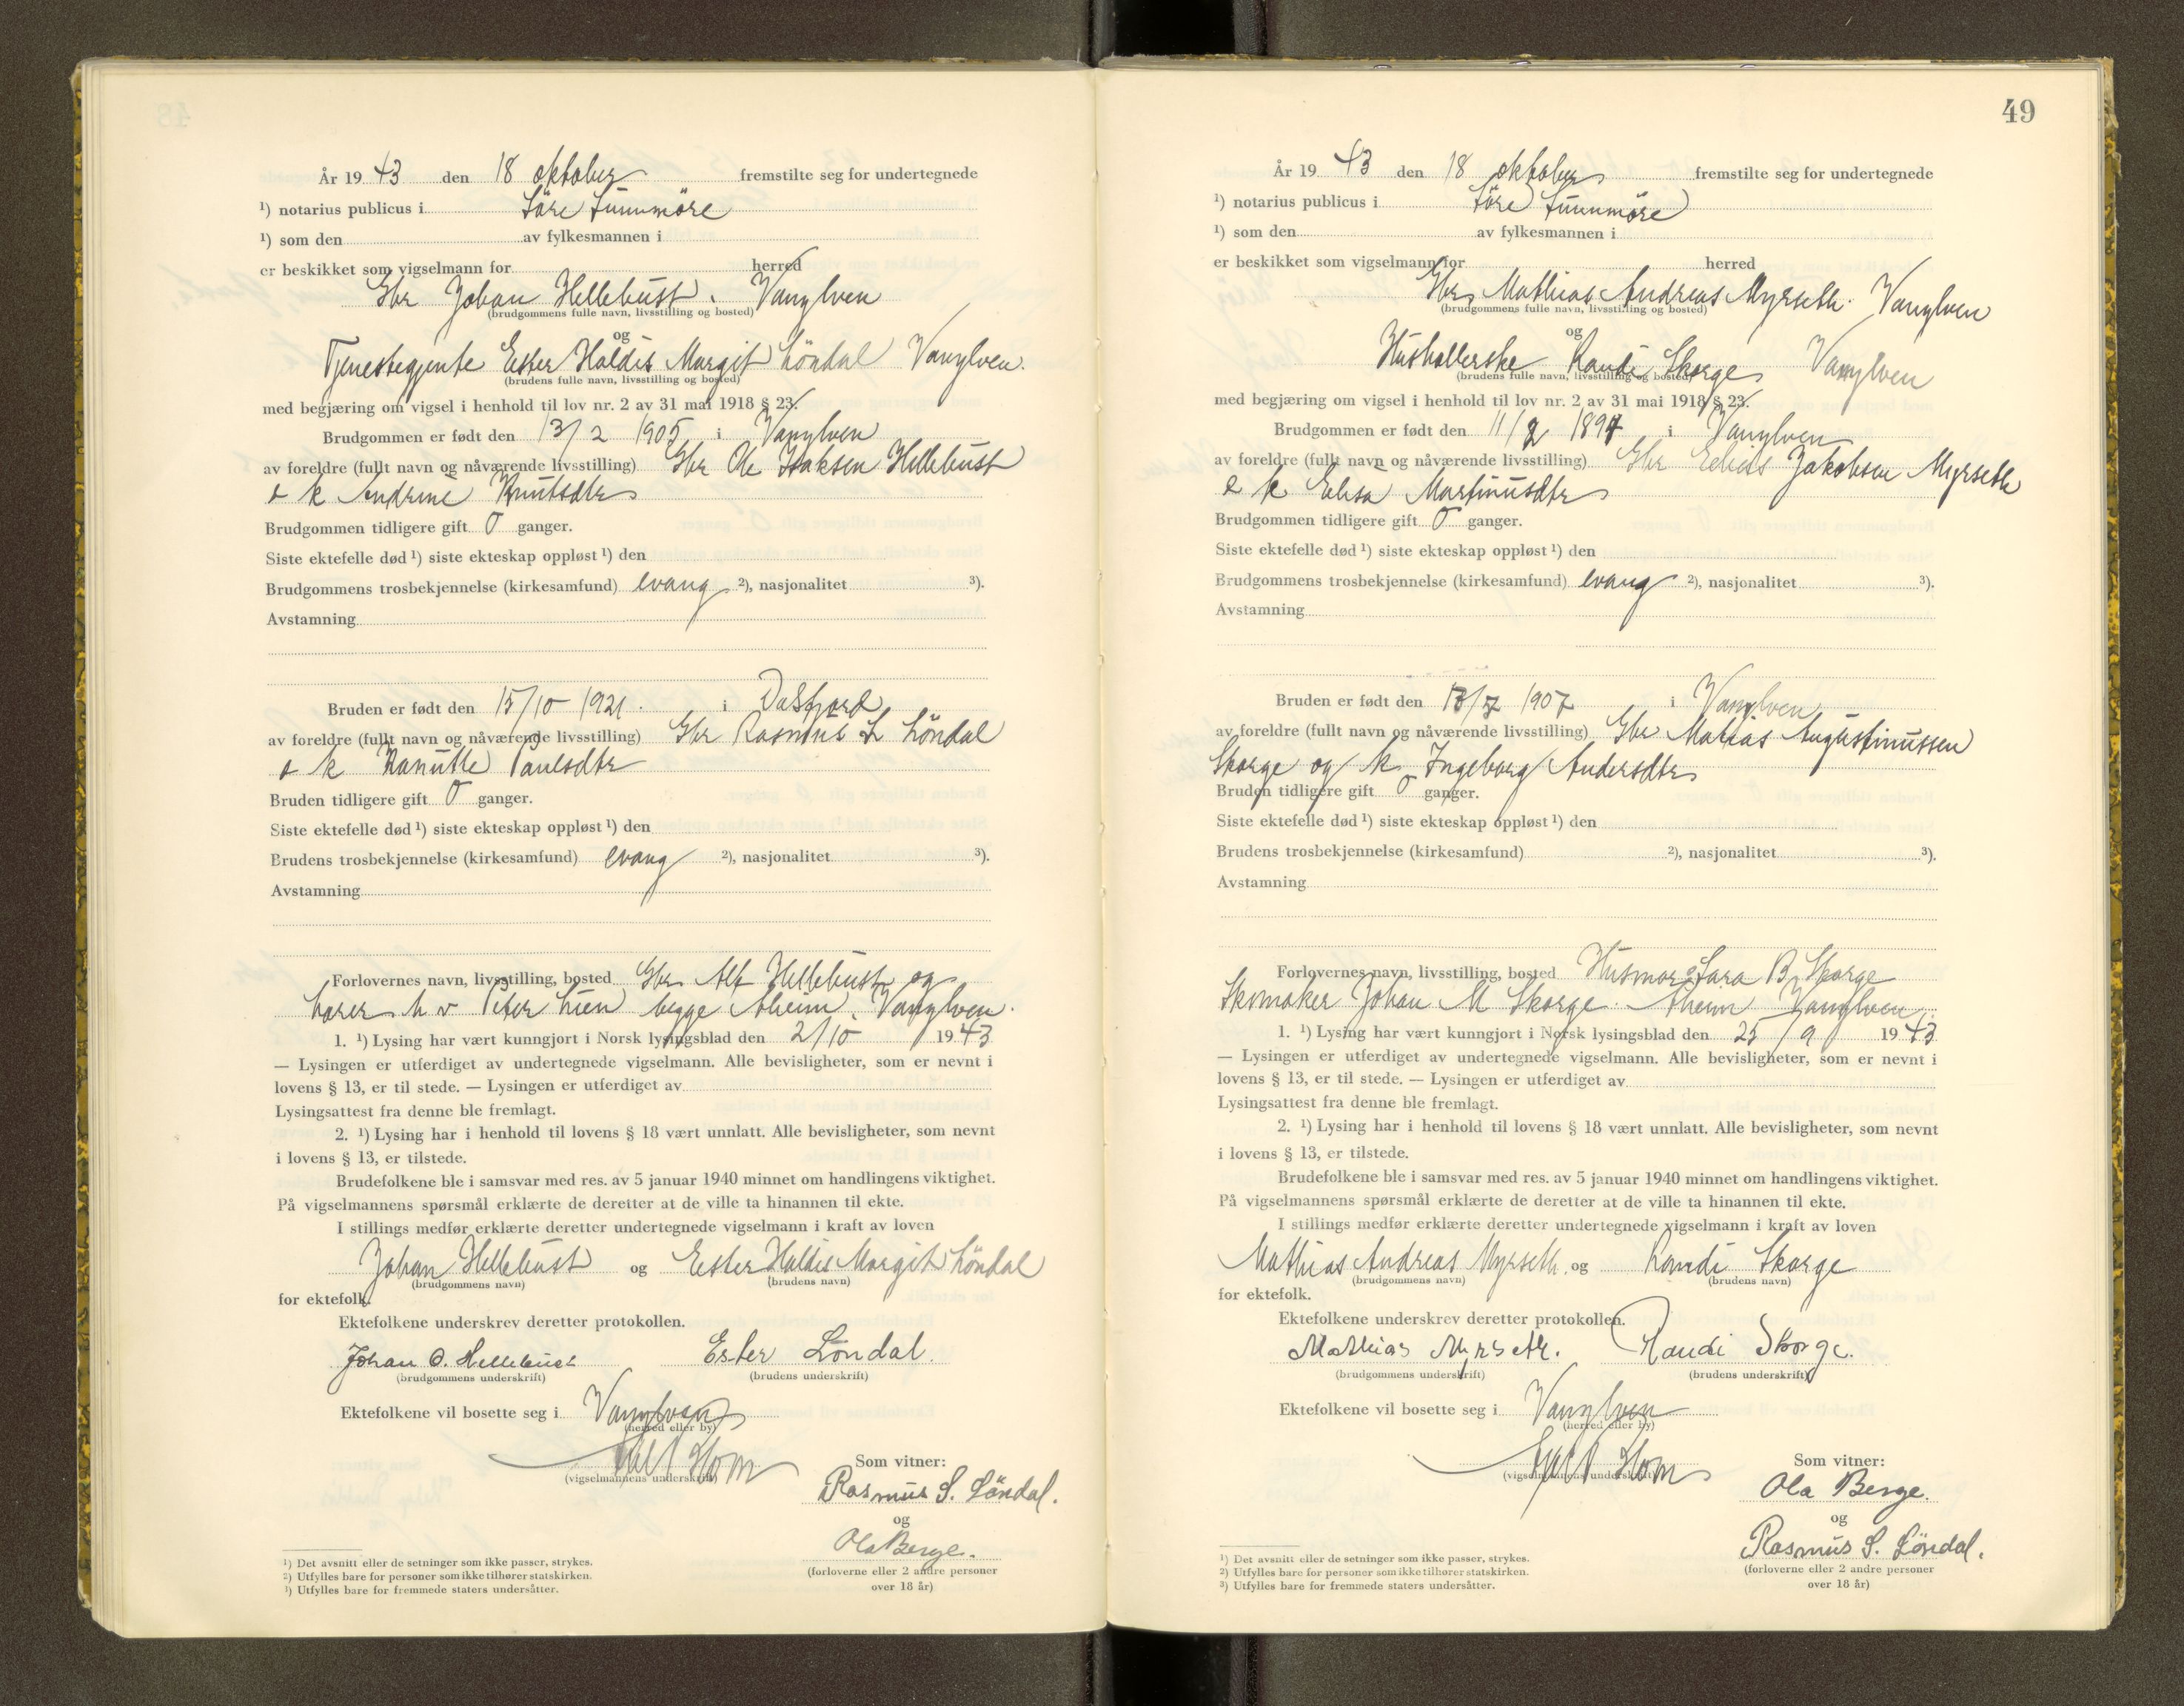 År 19 43 den 18 oktober fremstilte seg for undertegnede
¹) notarius publicus i Söre Sunnmöre
¹) som den av fylkesmannen i
er beskikket som vigselmann for herred
Gbr Johan Hellebust. Vanylven
(brudgommens fulle navn, livsstilling og bosted)
og
Tjenestegjente Ester Haldis Margit Löndal Vanylven.
(brudens fulle navn, livsstilling og bosted)
med begjæring om vigsel i henhold til lov nr. 2 av 31 mai 1918 § 23.
Brudgommen er født den 13/2 1905 i Vanylven
av foreldre (fullt navn og nåværende livsstilling) Gbr Ole Isaksen Hellebust
o k Andrine Knutsdtr
Brudgommen tidligere gift 0 ganger.
Siste ektefelle død ¹) siste ekteskap oppløst ¹) den
Brudgommens trosbekjennelse (kirkesamfund) evang ²), nasjonalitet ³).
Avstamning
Bruden er født den 15/10 1921. i Dalsfjord
av foreldre (fullt navn og nåværende livsstilling) Gbr Rasmus S Löndal
o k Paulsdtr
Bruden tidligere gift 0 ganger.
Siste ektefelle død ¹) siste ekteskap oppløst ¹) den
Brudens trosbekjennelse (kirkesamfund) evang ²), nasjonalitet ³).
Avstamning
Forlovernes navn, livsstilling, bosted Gbr Alf Hellebust og
h v Peter Lien begge Åheim, Vanylven.
1. ¹) Lysing har vært kunngjort i Norsk lysingsblad den 2/10 19 43
— Lysingen er utferdiget av undertegnede vigselmann. Alle bevisligheter, som er nevnt i
lovens § 13, er til stede. — Lysingen er utferdiget av
Lysingsattest fra denne ble fremlagt.
2. ¹) Lysing har i henhold til lovens § 18 vært unnlatt. Alle bevisligheter, som nevnt
i lovens § 13, er tilstede.
Brudefolkene ble i samsvar med res. av 5 januar 1940 minnet om handlingens viktighet.
På vigselmannens spørsmål erklærte de deretter at de ville ta hinannen til ekte.
I stillings medfør erklærte deretter undertegnede vigselmann i kraft av loven
Johan Hellebust og Ester Haldis Margit Löndal
(brudgommens navn) (brudens navn)
for ektefolk.
Ektefolkene underskrev deretter protokollen.
Johan O. Hellebust Ester Löndal.
(brudgommens underskrift) (brudens underskrift)
Ektefolkene vil bosette seg i Vanylven
(herred eller by)
Hom
(vigselmannens underskrift)
Som vitner:
Rasmus S. Löndal.
og
Ola Berge.
(forloverne eller 2 andre personer
over 18 år)
¹) Det avsnitt eller de setninger som ikke passer, strykes.
²) Utfylles bare for personer som ikke tilhører statskirken.
³) Utfylles bare for fremmede staters undersåtter.
49
År 19 43 den 18 oktober fremstilte seg for undertegnede
¹) notarius publicus i Söre Sunnmöre
¹) som den av fylkesmannen i
er beskikket som vigselmann for herred
Gbr Mathias Andreas Myrseth. Vanylven
(brudgommens fulle navn, livsstilling og bosted)
og
Husholderske Randi Skorge Vanylven
(brudens fulle navn, livsstilling og bosted)
med begjæring om vigsel i henhold til lov nr. 2 av 31 mai 1918 § 23.
Brudgommen er født den 11/ i Vanylven
av foreldre (fullt navn og nåværende livsstilling) Gbr Jakobsen Myrseth
o k Elisa Martinusdtr
Brudgommen tidligere gift 0 ganger.
Siste ektefelle død ¹) siste ekteskap oppløst ¹) den
Brudgommens trosbekjennelse (kirkesamfund) evang ²), nasjonalitet ³).
Avstamning
Bruden er født den 1907 i Vanylven
av foreldre (fullt navn og nåværende livsstilling) Gbr Matias Augustinussen
Skorge og k Ingeborg Andersdtr
Bruden tidligere gift 0 ganger.
Siste ektefelle død ¹) siste ekteskap oppløst ¹) den
Brudens trosbekjennelse (kirkesamfund) ²), nasjonalitet ³).
Avstamning
Forlovernes navn, livsstilling, bosted Husmor Sara B. Skorge
Skomaker Johan M Skorge. Åheim Vanylven.
1. ¹) Lysing har vært kunngjort i Norsk lysingsblad den 25/9 19 43
— Lysingen er utferdiget av undertegnede vigselmann. Alle bevisligheter, som er nevnt i
lovens § 13, er til stede. — Lysingen er utferdiget av
Lysingsattest fra denne ble fremlagt.
2. ¹) Lysing har i henhold til lovens § 18 vært unnlatt. Alle bevisligheter, som nevnt
i lovens § 13, er tilstede.
Brudefolkene ble i samsvar med res. av 5 januar 1940 minnet om handlingens viktighet.
På vigselmannens spørsmål erklærte de deretter at de ville ta hinannen til ekte.
I stillings medfør erklærte deretter undertegnede vigselmann i kraft av loven
Mathias Andreas Myrseth. og Randi Skorge
(brudgommens navn) (brudens navn)
for ektefolk.
Ektefolkene underskrev deretter protokollen.
Mathias Myrseth. Randi Skorge.
(brudgommens underskrift) (brudens underskrift)
Ektefolkene vil bosette seg i Vanylven
(herred eller by)
Hom
(vigselmannens underskrift)
Som vitner:
Ola Berge.
og
Rasmus S. Löndal.
(forloverne eller 2 andre personer
over 18 år)
¹) Det avsnitt eller de setninger som ikke passer, strykes.
²) Utfylles bare for personer som ikke tilhører statskirken.
³) Utfylles bare for fremmede staters undersåtter.